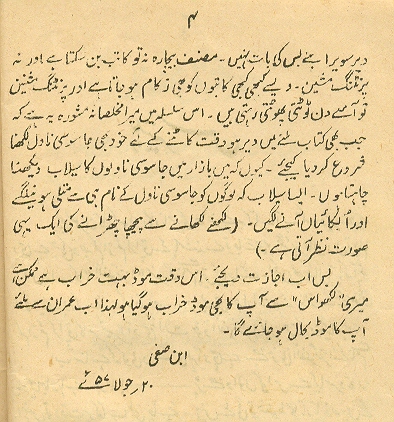 ۴
دیر سویر اپنے بس کی بات نہیں۔ مصنف بیچارہ نہ تو کاتب بن سکتا ہے اور نہ
پرنٹنگ مشین۔ ویسے کبھی کبھی کاتبوں کو بھی زکام ہو جاتا ہے اور پرنٹنگ مشینیں
تو آئے دن ٹوٹتی پھوٹتی رہتی ہیں۔ اس سلسلہ میں میرا مخلصانہ مشورہ یہ ہے کہ
جب بھی کتاب ملنے میں دیر ہو وقت کاٹنے کے لئے خود بھی جاسوسی ناول لکھنا
شروع کر دیا کیجئے۔ کیوں کہ میں بازار میں جاسوسی ناولوں کا سیلاب دیکھنا
چاہتا ہوں۔ ایسا سیلاب کہ لوگوں کو جاسوسی ناول کے نام ہی سے متلی ہونے لگے
اور اُبکائیاں آنے لگیں۔ (لکھنے لکھانے سے پیچھا چھڑانے کی ایک یہی
صورت نظر آتی ہے۔)
بس اب اجازت دیجئے۔ اس وقت موڈ بہت خراب ہے ممکن ہے
میری "لکھواس" سے آپ کا بھی موڈ خراب ہو گیا ہو لہذا اب عمران سے ملئے
آپ کا موڈ بحال ہو جائے گا۔
ابن صفی
۲۰؍ جولائی ۵۷ء